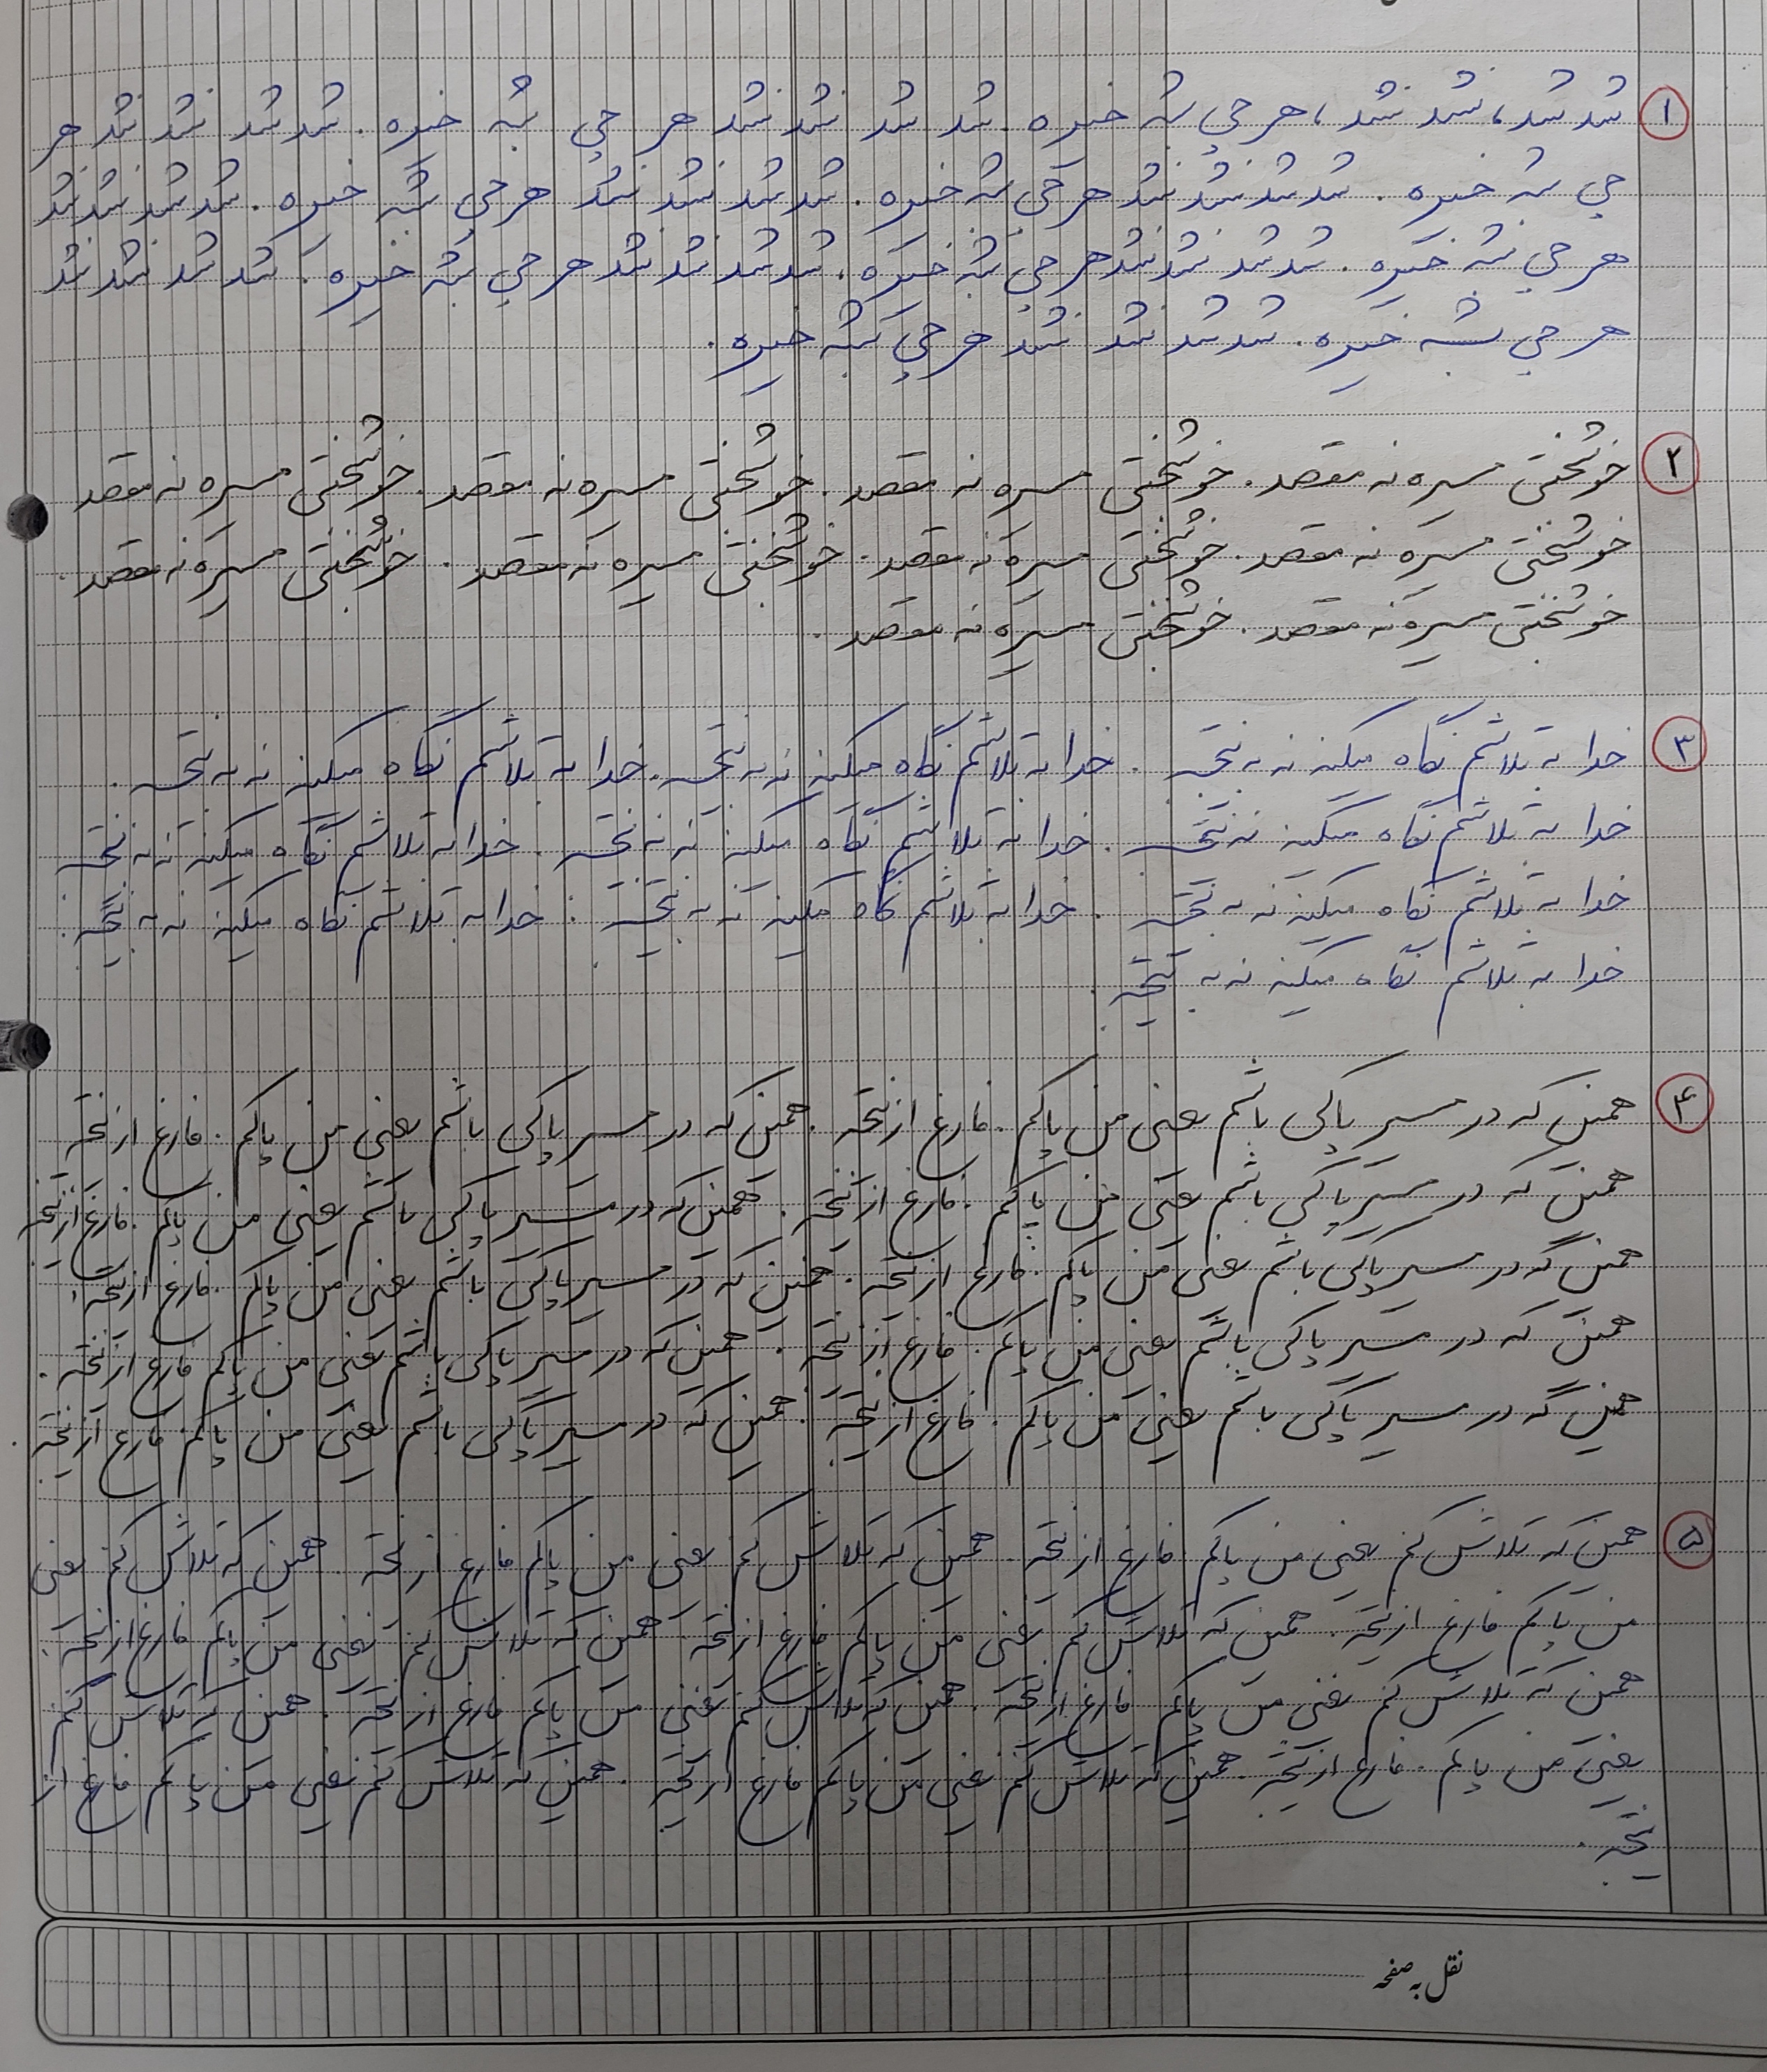 ۱ شد شد، نشد نشد، هر چی بشه خیره. شد شد نشد نشد هر چی بشه خیره. شد شد نشد نشد هر
چی بشه خیره. شد شد نشد نشد هر چی بشه خیره. شد شد نشد نشد هر چی بشه خیره. شد شد نشد نشد
هر چی بشه خیره. شد شد نشد نشد هر چی بشه خیره. شد شد نشد نشد هر چی بشه خیره. شد شد نشد نشد
هر چی بشه خیره. شد شد نشد نشد هر چی بشه خیره.
۲ خوشبختی مسیره نه مقصد. خوشبختی مسیره نه مقصد. خوشبختی مسیره نه مقصد. خوشبختی مسیره نه مقصد
خوشبختی مسیره نه مقصد. خوشبختی مسیره نه مقصد. خوشبختی مسیره نه مقصد. خوشبختی مسیره نه مقصد.
خوشبختی مسیره نه مقصد. خوشبختی مسیره نه مقصد.
۳ خدا به تلاشم نگاه میکنه نه به نتیجه. خدا به تلاشم نگاه میکنه نه به نتیجه. خدا به تلاشم نگاه میکنه نه به نتیجه.
خدا به تلاشم نگاه میکنه نه به نتیجه. خدا به تلاشم نگاه میکنه نه به نتیجه. خدا به تلاشم نگاه میکنه نه به نتیجه
خدا به تلاشم نگاه میکنه نه به نتیجه. خدا به تلاشم نگاه میکنه نه به نتیجه. خدا به تلاشم نگاه میکنه نه به نتیجه.
خدا به تلاشم نگاه میکنه نه به نتیجه.
۴ همین که در مسیر پاکی باشم یعنی من پاکم. فارغ از نتیجه. همین که در مسیر پاکی باشم یعنی من پاکم. فارغ از نتیجه
همین که در مسیر پاکی باشم یعنی من پاکم. فارغ از نتیجه. همین که در مسیر پاکی باشم یعنی من پاکم. فارغ از نتیجه
همین که در مسیر پاکی باشم یعنی من پاکم. فارغ از نتیجه. همین که در مسیر پاکی باشم یعنی من پاکم. فارغ از نتیجه.
همین که در مسیر پاکی باشم یعنی من پاکم. فارغ از نتیجه. همین که در مسیر پاکی باشم یعنی من پاکم فارغ از نتیجه.
همین که در مسیر پاکی باشم یعنی من پاکم. فارغ از نتیجه. همین که در مسیر پاکی باشم یعنی من پاکم فارغ از نتیجه.
۵ همین که تلاش کنم یعنی من پاکم. فارغ از نتیجه. همین که تلاش کنم یعنی من پاکم فارغ از نتیجه. همین که تلاش کنم یعنی
من پاکم فارغ از نتیجه. همین که تلاش کنم یعنی من پاکم فارغ از نتیجه. همین که تلاش کنم یعنی من پاکم فارغ از نتیجه.
همین که تلاش کنم یعنی من پاکم فارغ از نتیجه. همین که تلاش کنم یعنی من پاکم فارغ از نتیجه. همین که تلاش کنم
یعنی من پاکم. فارغ از نتیجه. همین که تلاش کنم یعنی من پاکم فارغ از نتیجه. همین که تلاش کنم یعنی من پاکم فارغ از
نتیجه.
نقل به صفحه